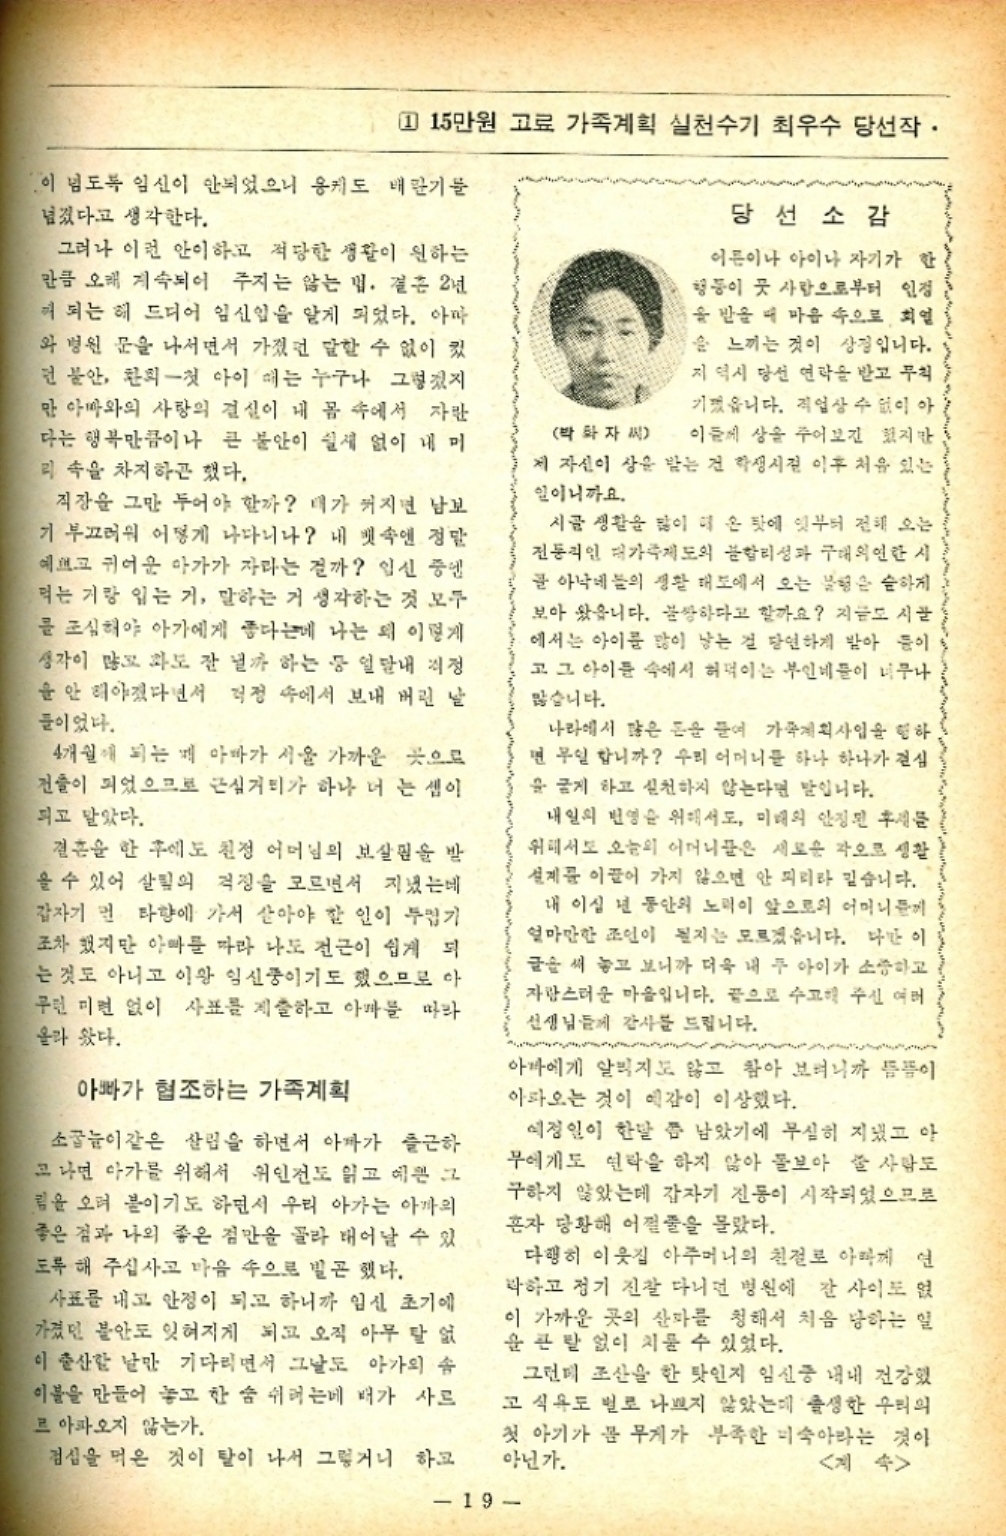 ① 15만원 고료 가족계획 실천수기 최우수 당선작 ·
이 넘도록 임신이 안되었으니 용케도 배란기를
넘겼다고 생각한다.
그러나 이런 안이하고 적당한 생활이 원하는
만큼 오래 계속되어 주지는 않는 법. 결혼 2년
째 되는 해 드디어 임신임을 알게 되었다. 아빠
와 병원 문을 나서면서 가졌던 말할 수 없이 컸
던 불안, 환희—첫 아이 때는 누구나 그렇겠지
만 아빠와의 사랑의 결실이 내 몸 속에서 자란
다는 행복만큼이나 큰 불안이 쉴새 없이 내 머
리 속을 차지하곤 했다.
직장을 그만 두어야 할까? 배가 커지면 남보
기 부끄러워 어떻게 나다니나? 내 뱃속엔 정말
예쁘고 귀여운 아가가 자라는 걸까? 임신 중엔
먹는 거랑 입는 거, 말하는 거 생각하는 것 모두
를 조심해야 아가에게 좋다는데 나는 왜 이렇게
생각이 많고 화도 잘 낼까 하는 등 일달내 걱정
을 안 해야겠다면서 걱정 속에서 보내 버린 날
들이었다.
4개월째 되는 때 아빠가 서울 가까운 곳으로
전출이 되었으므로 근심거리가 하나 더 는 셈이
되고 말았다.
결혼을 한 후에도 친정 어머님의 보살핌을 받
을 수 있어 살림의 걱정을 모르면서 지냈는데
갑자기 먼 타향에 가서 살아야 할 일이 두렵기
조차 했지만 아빠를 따라 나도 전근이 쉽게 되
는 것도 아니고 이왕 임신중이기도 했으므로 아
무런 미련 없이 사표를 제출하고 아빠를 따라
올라 왔다.
아빠가 협조하는 가족계획
소꿉놀이같은 살림을 하면서 아빠가 출근하
고 나면 아가를 위해서 위인전도 읽고 예쁜 그
림을 오려 붙이기도 하면서 우리 아가는 아빠의
좋은 점과 나의 좋은 점만을 골라 태어날 수 있
도록 해 주십사고 마음 속으로 빌곤 했다.
사표를 내고 안정이 되고 하니까 임신 초기에
가졌던 불안도 잊혀지게 되고 오직 아무 탈 없
이 출산할 날만 기다리면서 그날도 아가의 솜
이불을 만들어 놓고 한 숨 쉬려는데 배가 사르
르 아파오지 않는가.
점심을 먹은 것이 탈이 나서 그렇거니 하고
당선소감
(박화자씨)
어른이나 아이나 자기가 한
행동이 뭇 사람으로부터 인정
을 받을 때 마음 속으로 희열
을 느끼는 것이 상정입니다.
저 역시 당선 연락을 받고 무척
기뻤읍니다. 직업상 수없이 아
이들께 상을 주어보긴 했지만
제 자신이 상을 받는 건 학생시절 이후 처음 있는
일이니까요.
시골 생활을 많이 해 온 탓에 옛부터 전해 오는
전통적인 대가족제도의 불합리성과 구태의연한 시
골 아낙네들의 생활 태도에서 오는 불행은 숱하게
보아 왔읍니다. 불쌍하다고 할까요? 지금도 시골
에서는 아이를 많이 낳는 걸 당연하게 받아 들이
고 그 아이들 속에서 허덕이는 부인네들이 너무나
많습니다.
나라에서 많은 돈을 들여 가족계획사업을 행하
면 무얼 합니까? 우리 어머니들 하나 하나가 결심
을 굳게 하고 실천하지 않는다면 말입니다.
내일의 번영을 위해서도, 미래의 안정된 후세를
위해서도 오늘의 어머니들은 새로운 각오로 생활
설계를 이끌어 가지 않으면 안 되리라 믿습니다.
내 이십 년 동안의 노력이 앞으로의 어머니들께
얼마만한 조언이 될지는 모르겠읍니다. 다만 이
글을 써 놓고 보니까 더욱 내 두 아이가 소중하고
자랑스러운 마음입니다. 끝으로 수고해 주신 여러
선생님들께 감사를 드립니다.
아빠에게 알리지도 않고 참아 보려니까 뜸뜸이
아파오는 것이 예감이 이상했다.
예정일이 한달 쯤 남았기에 무심히 지냈고 아
무에게도 연락을 하지 않아 돌보아 줄 사람도
구하지 않았는데 갑자기 진통이 시작되었으므로
혼자 당황해 어쩔줄을 몰랐다.
다행히 이웃집 아주머니의 친절로 아빠께 연
락하고 정기 진찰 다니던 병원에 갈 사이도 없
이 가까운 곳의 산파를 청해서 처음 당하는 일
을 큰 탈 없이 치룰 수 있었다.
그런데 조산을 한 탓인지 임신중 내내 건강했
고 식욕도 별로 나쁘지 않았는데 출생한 우리의
첫 아기가 몸 무게가 부족한 미숙아라는 것이
아닌가. <계 속>
— 19 —